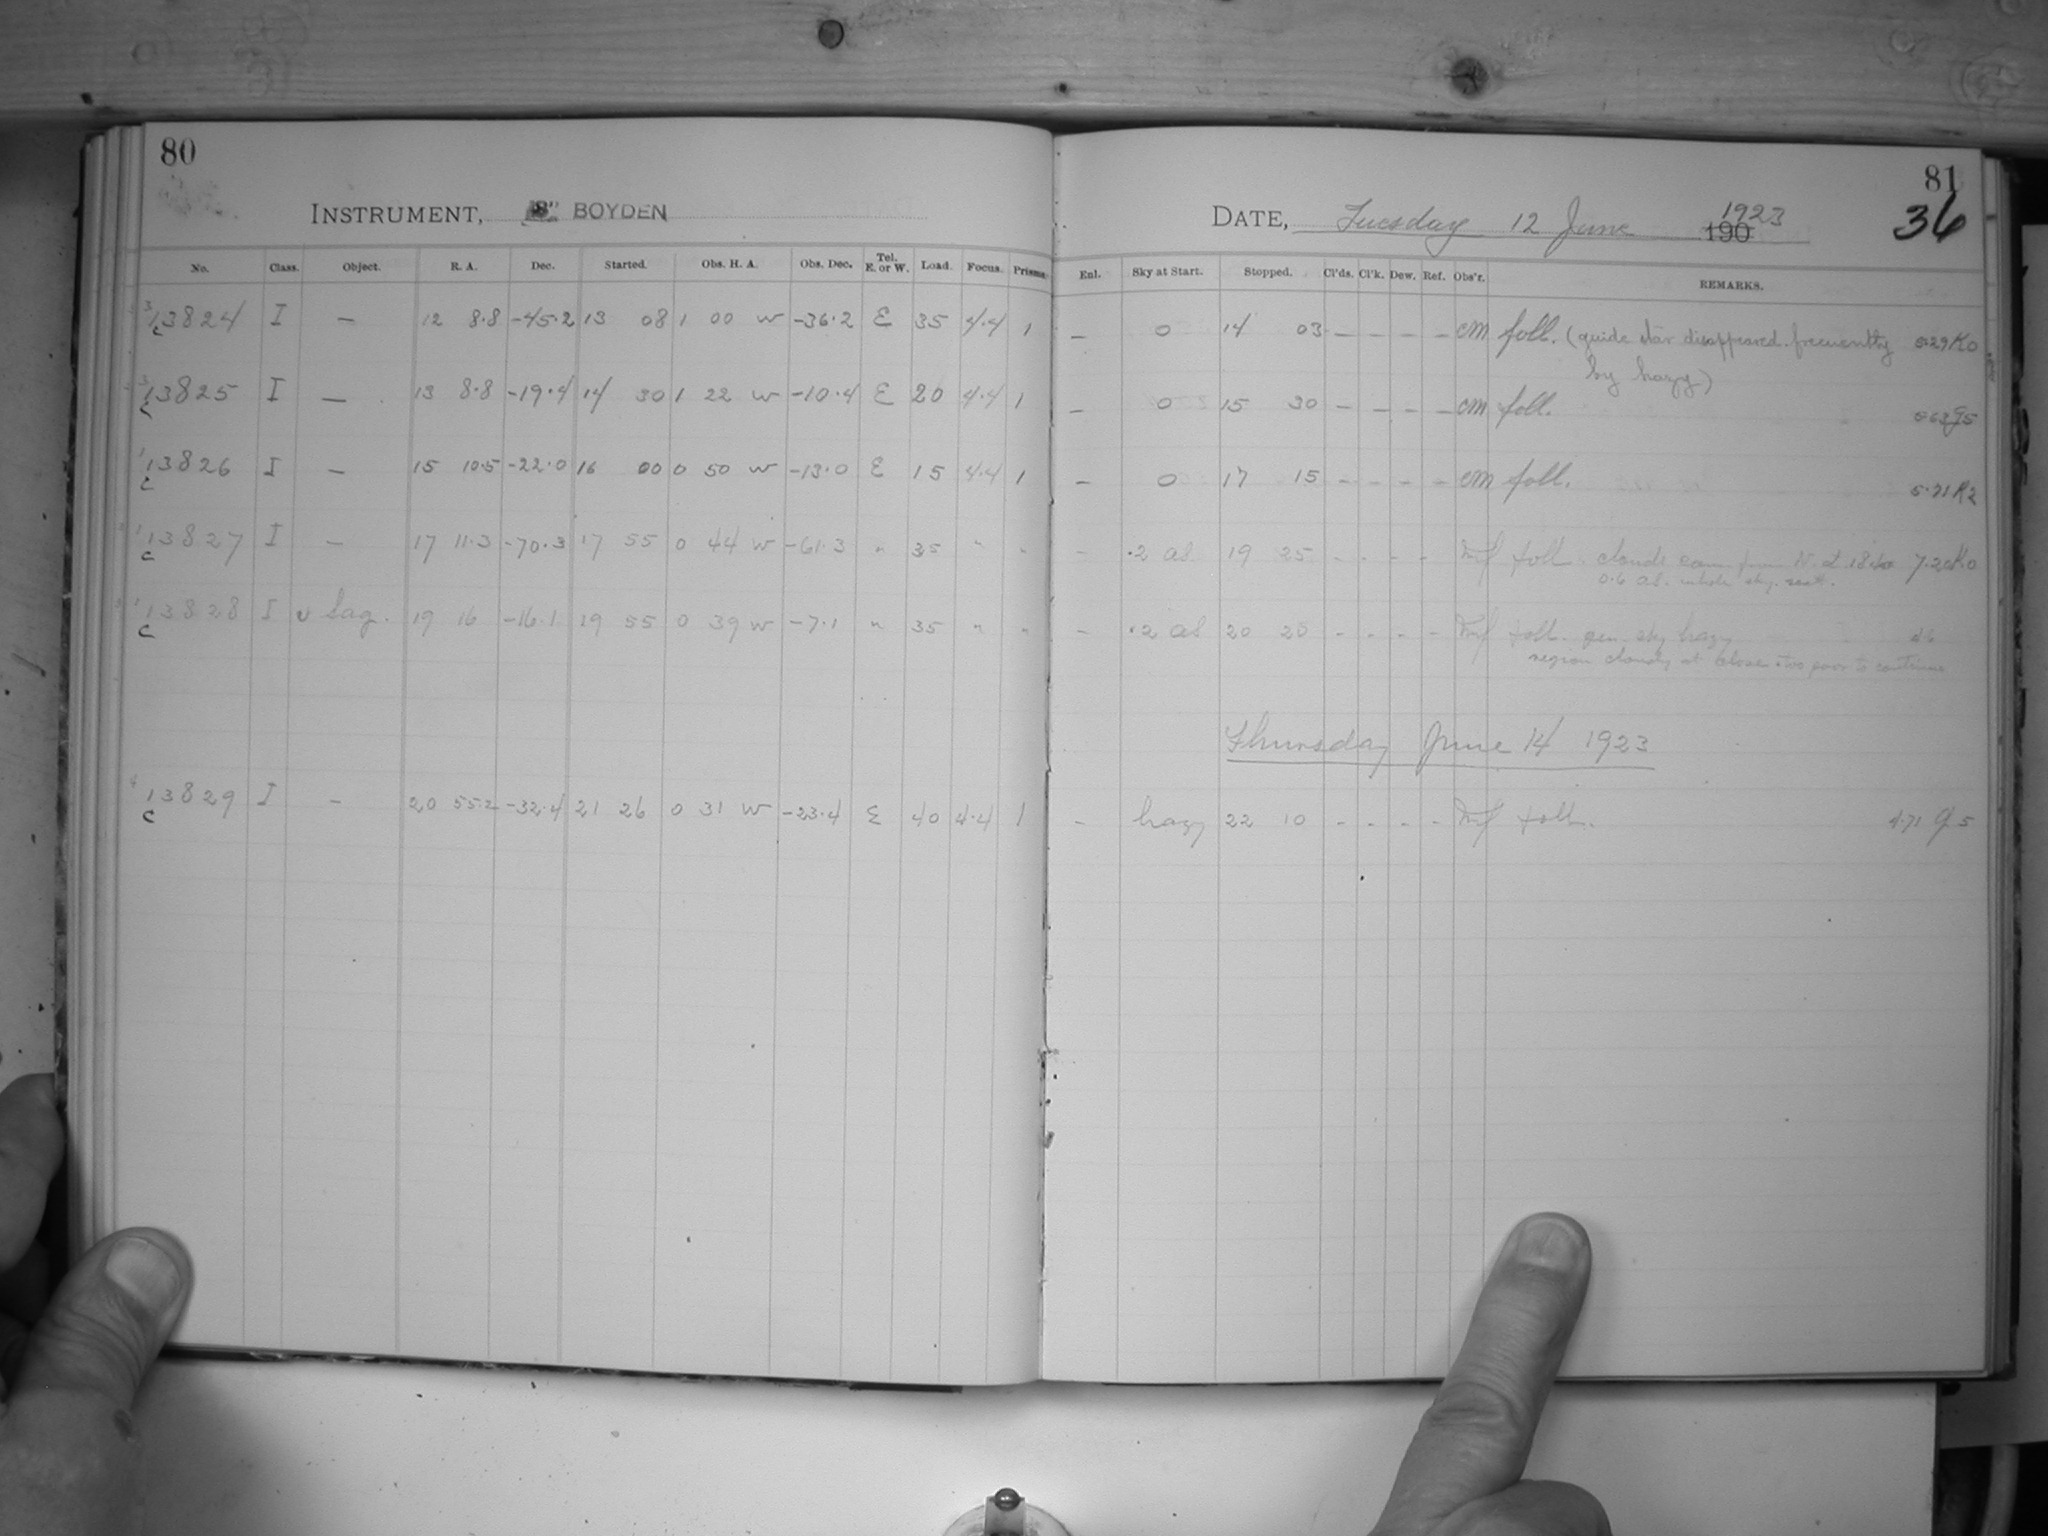 80
INSTRUMENT, 8" BOYDEN
No. Class. Object. R. A. Dec. Started. Obs. H. A. Obs. Dec. Tel. E. or W. Load. Focus. Prisms.
3 c 13824 I — 12 8.8 -45.2 13 08 1 00 W -36.2 E 35 4.4 1
3 c 13825 I — 13 8.8 -19.4 14 30 1 22 W -10.4 E 20 4.4 1
1 c 13826 I — 15 10.5 -22.0 16 00 0 50 W -13.0 E 15 4.4 1
1 c 13827 I — 17 11.3 -70.3 17 55 0 44 W -61.3 " 35 " "
1 c 13828 I υ Sag. 19 16 -16.1 19 55 0 39 W -7.1 " 35 " "
4 c 13829 I — 20 55.2 -32.4 21 26 0 31 W -23.4 E 40 4.4 1
81
36
DATE, Tuesday 12 June 1923 190
Enl. Sky at Start. Stopped. Cl'ds. Cl'k. Dew. Ref. Obs'r. REMARKS.
— 0 14 03 — — — — CM foll. (guide star disappeared frequently 5.29 K0
by hazy)
— 0 15 30 — — — — CM foll. G5
— 0 17 15 — — — — CM foll. 5.71 K2
— .2 as 19 25 - - - - foll. clouds came from N. at 7.20 K0
0.6 as. whole sky.
— .2 as 20 25 - - - - foll. gen. sky hazy 4.6
region cloudy at close. too poor to continue
Thursday June 14 1923
— hazy 22 10 - - - - foll. 4.71 G5